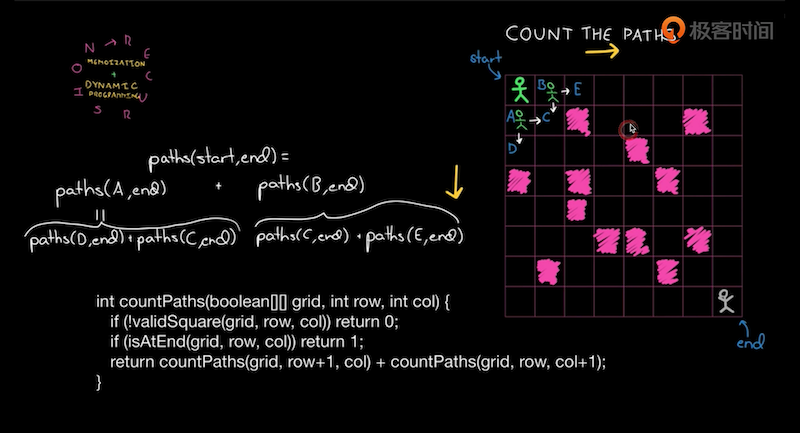 RECURSION
MEMOIZATION
+
DYNAMIC
PROGRAMMING
COUNT THE PATHS
极客时间
start
B
E
A
C
D
paths(start,end) =
paths(A,end) + paths(B,end)
=
paths(D,end)+paths(C,end) paths(C,end) + paths(E,end)
int countPaths(boolean[][] grid, int row, int col) {
if (!validSquare(grid, row, col)) return 0;
if (isAtEnd(grid, row, col)) return 1;
return countPaths(grid, row+1, col) + countPaths(grid, row, col+1);
}
end